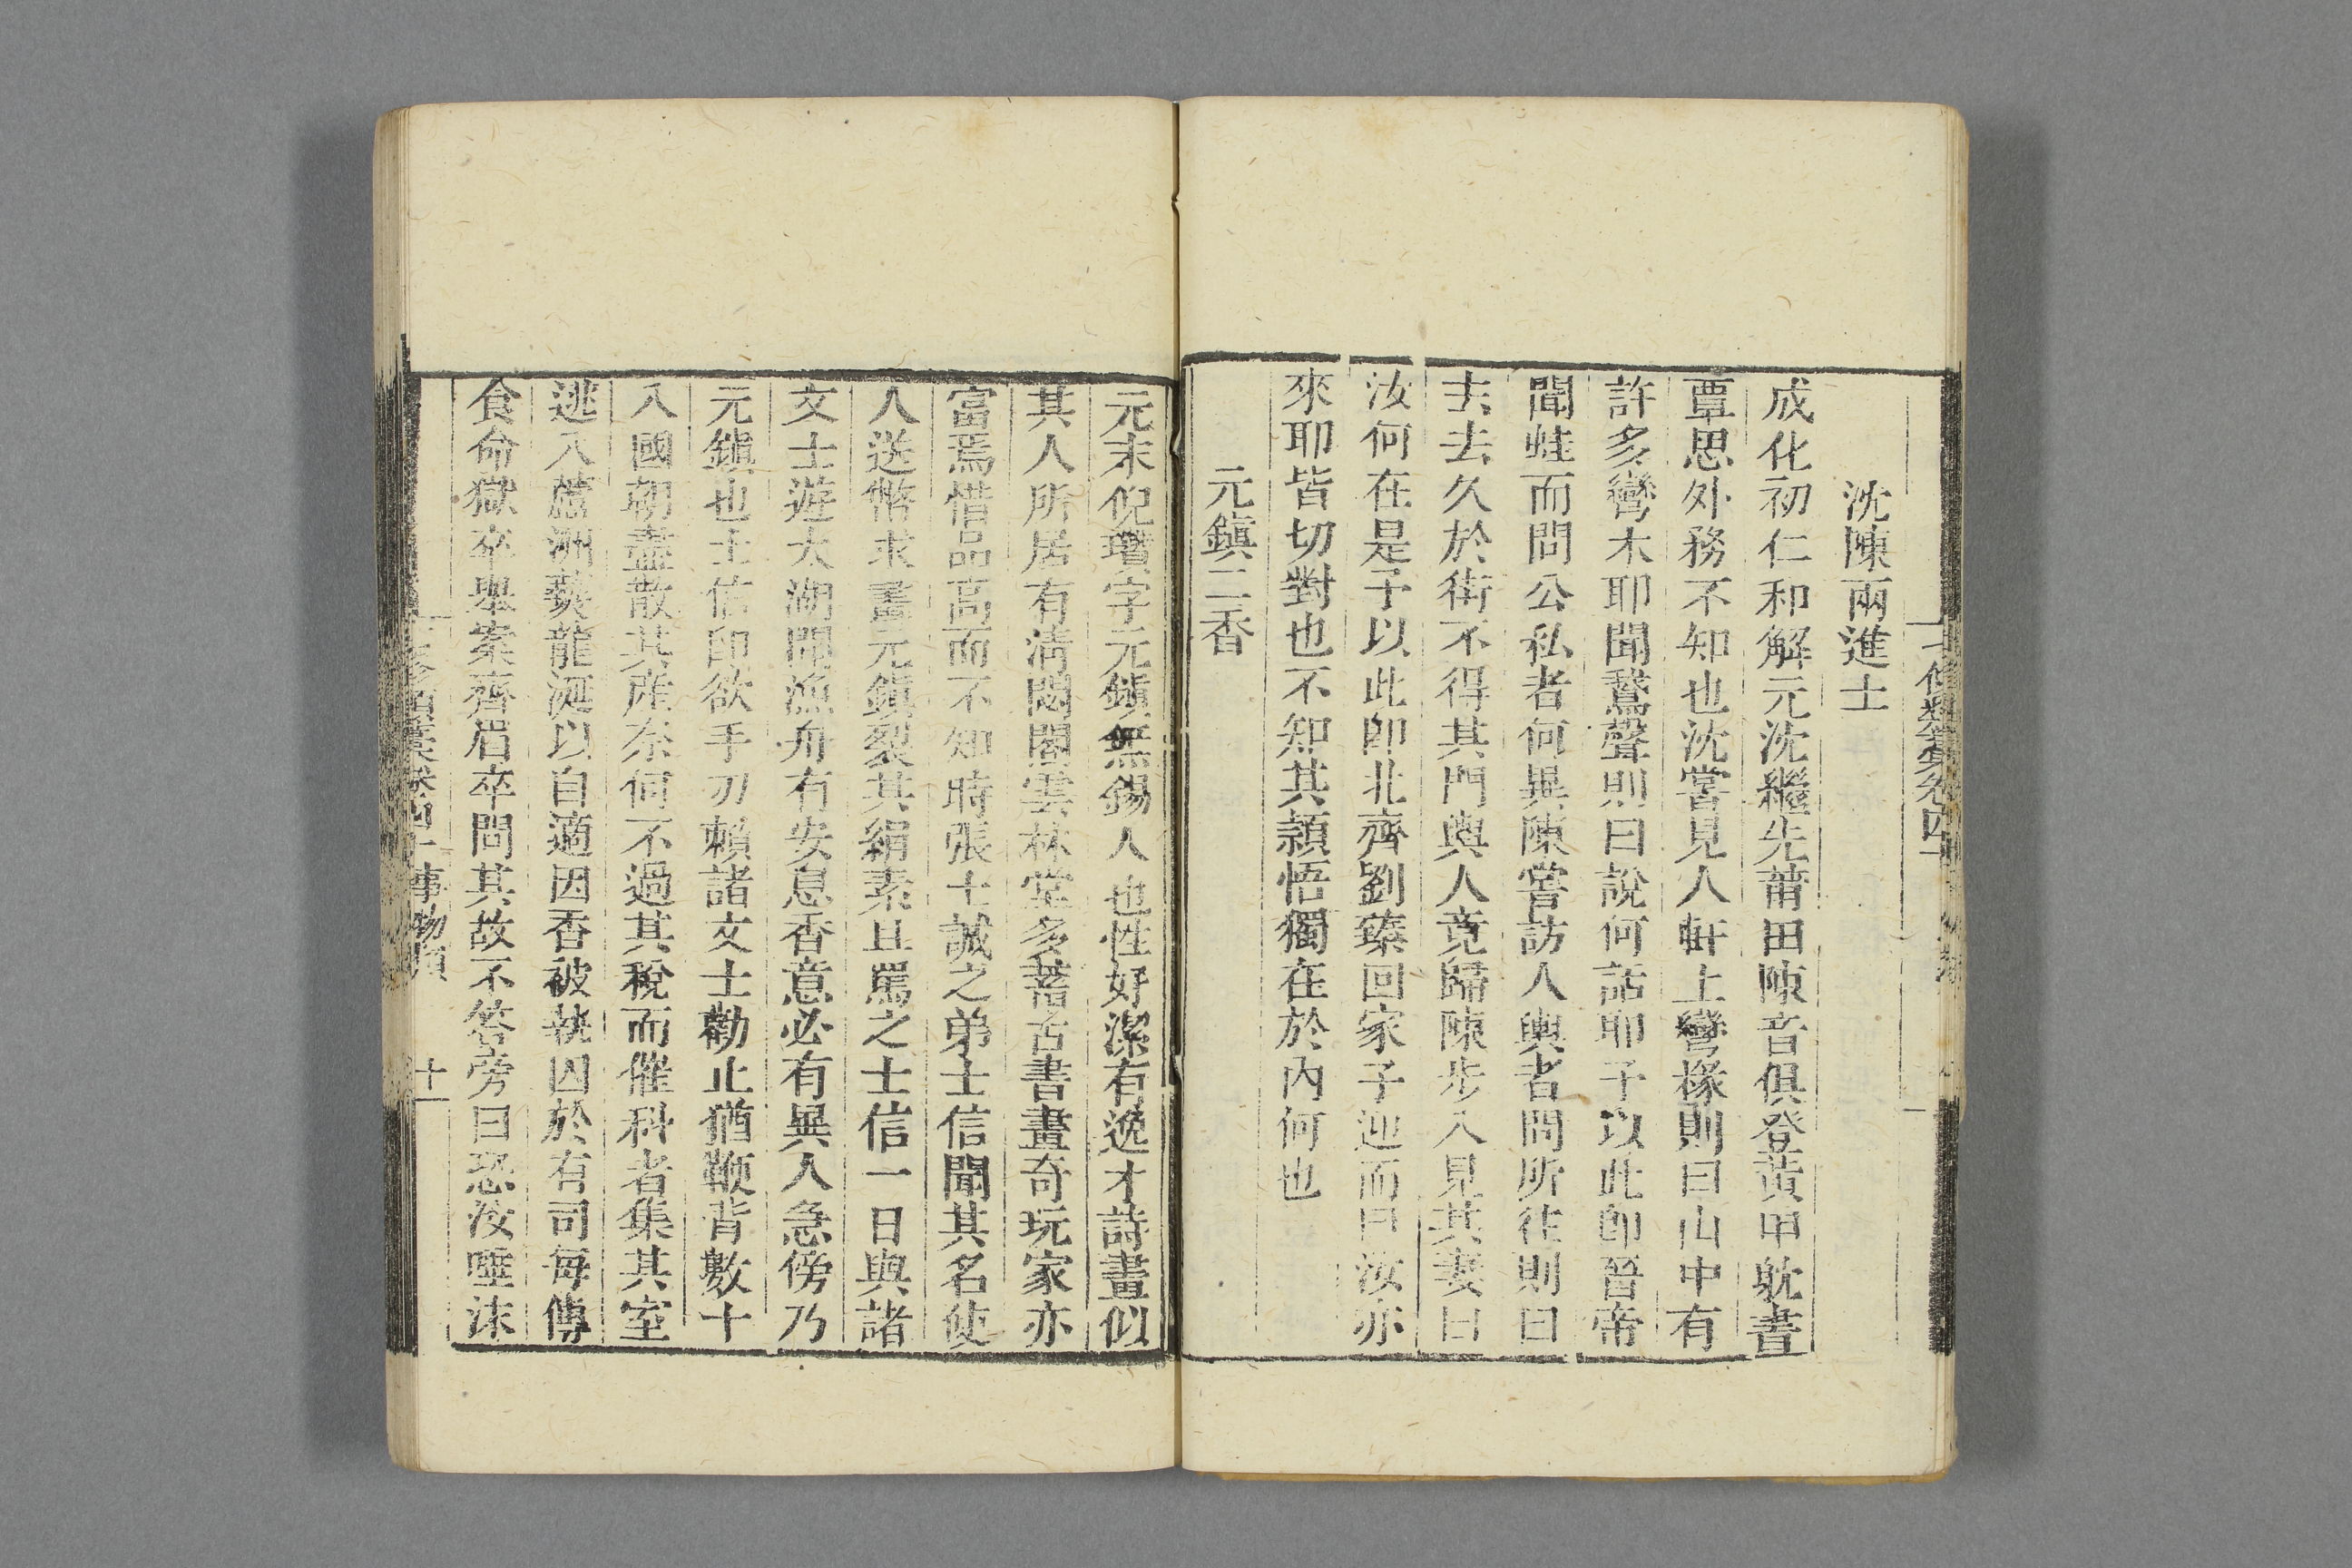 沈陳兩進士
成化初仁和解元沈繼先莆田陳音俱登黃甲躭書
覃思外務不知也沈嘗見人軒上彎椽則曰山中有
許多彎木耶聞鵞聲則曰說何話耶予以此卽晉帝
聞蛙而問公私者何異陳嘗訪人輿者問所往則曰
去去久於街不得其門輿人竟歸陳步入見其妻曰
汝何在是予以此卽北齊劉臻回家子迎而曰汝亦
來耶皆切對也不知其頴悟獨在於內何也
元鎮二香
元末倪瓚字元鎮無錫人也性好潔有逸才詩畫似
其人所居有清閟閣雲林堂多蓄古書畫奇玩家亦
富焉惜品高而不知時張士誠之弟士信聞其名使
人送幣求畫元鎮裂其絹素且罵之士信一日與諸
文士遊太湖聞漁舟有安息香意必有異人急傍乃
元鎮也士信卽欲手刃賴諸文士勸止猶鞭背數十
入國朝盡散其產奈何不過其稅而催科者集其室
逃入蘆洲爇龍涎以自適因香被執囚於有司每傳
食命獄卒舉案齊眉卒問其故不答旁曰恐汝唾沫
卷四十 事物類
十一